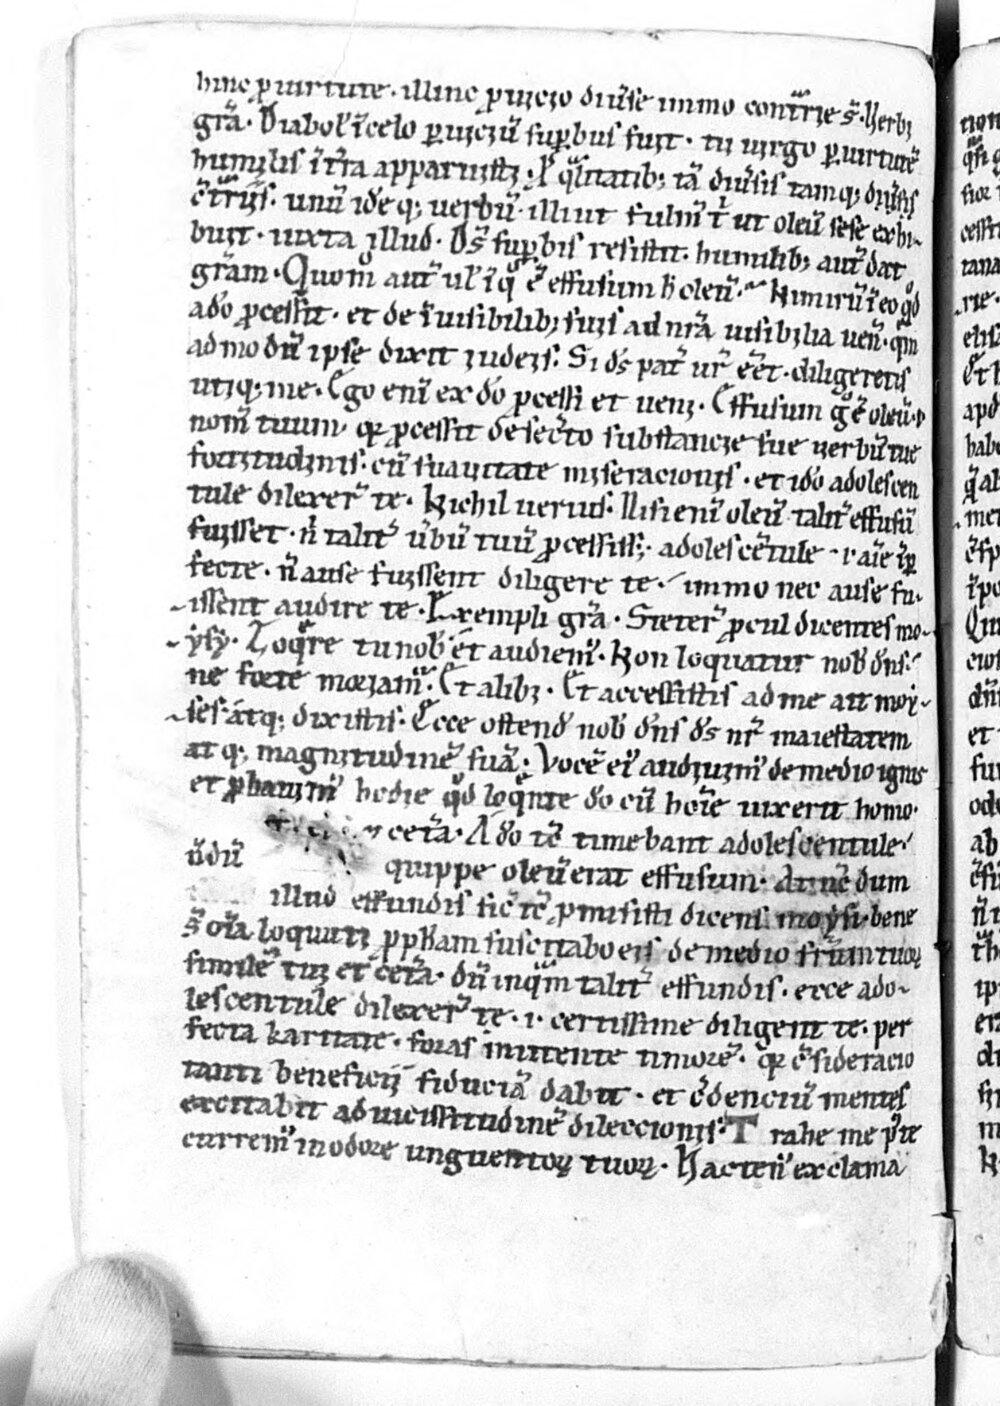 hinc ꝓ uirtute · illinc ꝓ uicio diũse immo contͣrie s̃ · Verbi
grã · Diabol᷒ ĩ celo ꝑ uiciũ suꝑbus fuit · tu uirgo ꝑ uirtutẽ
humilis ĩ t̃ra apparuisti ·
cͣ̃triis · unũ idẽq; uerbũ · illi ut fulm̃ t᷒ ut oleũ sese exhi-
buit · iuxta illud · Ds̃ suꝑbis resistit · humilib; aut̃ dat
grãm · Quom̊ aut̃ ul᷒ ĩ qͦ ẽ effusum h̊ oleũ · Nimirũ ĩ eo qͦd
a do ꝓcessit · et de ĩuisibilib; suis ad nr̃a uisibilia uen̄ · qm̃
ad modũ ipse dixit iudeis · Si ds̃ pat̃ ur̃ eẽt · diligeretis
utiq; me · Ego enĩ ex do ꝓcessi et ueni · Effusum gͦ ẽ oleũ
nom̃ tuum · qꝛ ꝓcessit de sec̃to substancie sue uerbũ tue
fortitudinis · cũ suauitate miseracionis · et ido adolescen
tule dilexer̃ te · Nichil uerius · Nisi enĩ oleũ talit̃ effusũ
fuisset · n̄ talit̃ ũbũ tuũ ꝓcessiss; · adolescẽtule · i · aĩe ĩꝑ
fecte · n̄ ause fuissent diligere te · immo nec ause fu-
issent audire te · Exempli grã · Steter̃ ꝓcul dicentes mo-
ẏsẏ · Loqͤre tu nob̃ et audiem᷒ · Non loquatur nob̃ dñs ·
ne forte moriam᷒ · Et alibi · Et accessistis ad me ait moẏ-
ses · atq; dixistis · Ecce ostend̃ nob̃ dñs ds̃ nr̃ maiestatem
atq; magnitudinẽ suã · Vocẽ ei᷒ audiuim᷒ de medio ignis
et ꝓbauim᷒ hodie qͦd loqͤnte do cũ hoĩe uixerit homo ·
cetã · Ado tc̃ timebant adolescentule ·
ũdũ quippe oleũ erat effusum · At nc̃ dum
illud effundis sic̃ tc̃ ꝓmisisti dicens moẏsi · bene
s̃ oĩa loquuti ꝓpħam suscitabo eis de medio fr̃um tuoꝝ
similẽ tui et cetã · dũ inqͣm talit̃ effundis · ecce ado-
lescentule dilexer̃ te · i · certissime diligent te · per
fecta karitate · foras mittente timorẽ · qꝛ c̃sideracio
tanti beneficij fiduciã dabit · et c̃denciũ mentes
excitabit ad uicissitudinẽ dileccionis · Trahe me p᷒ te
currem᷒ in odore unguentoꝝ tuoꝝ · Hacten᷒ exclama